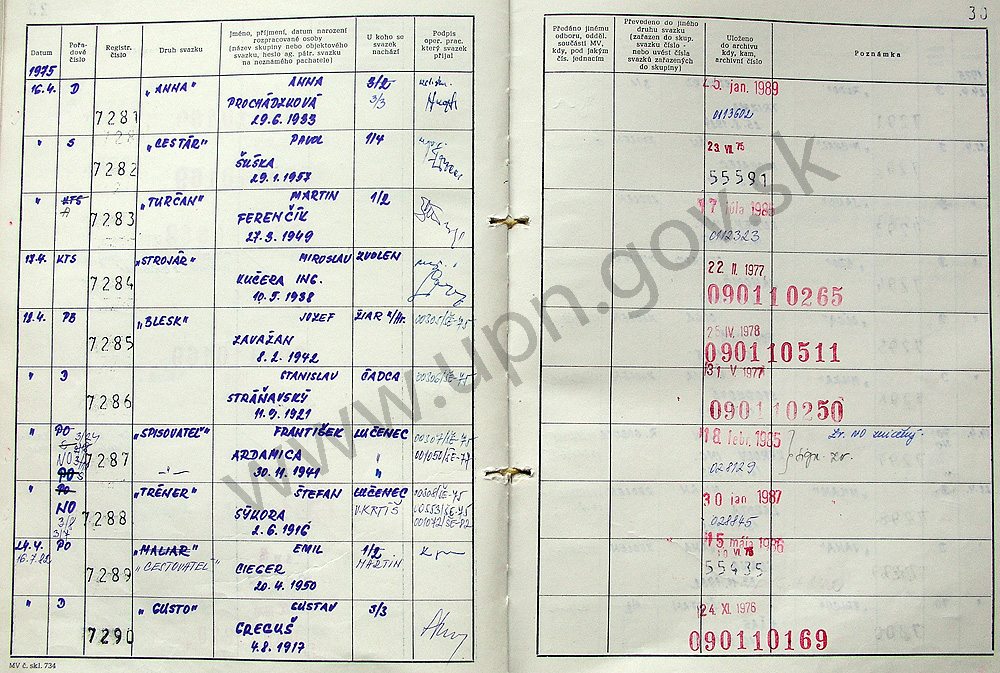 30
Datum
Pořadové číslo
Registr. číslo
Druh svazku
Jméno, příjmení, datum narození rozpracované osoby (název skupiny nebo objektového svazku, heslo ag. pátr. svazku na neznámého pachatele)
U koho se svazek nachází
Podpis oper. prac. který svazek přijal
Předáno jinému odboru, odděl. součásti MV, kdy, pod jakým čís. jednacím
Převedeno do jiného druhu svazku (zařazen do skup. svazku číslo - nebo uvést čísla svazků zařazených do skupiny)
Uloženo do archivu kdy, kam, archivní číslo
Poznámka
1975
16.4. D 7281 „ANNA" ANNA 3/2
PROCHÁDZKOVÁ 3/3
29.6.1933
25. jan. 1989
0113602
" S 7282 „CESTÁR" PAVOL 1/4
ŠUŠKA
29.1.1957
23. VII. 75
55591
" KTS A 7283 „TURČAN" MARTIN 1/2
FERENČÍK
27.3.1949
17. júla 1985
0112323
17.4. KTS 7284 „STROJÁR" MIROSLAV ZVOLEN
KUČERA ING.
10.5.1938
22. II. 1977
090110265
18.4. PO 7285 „BLESK" JOZEF ŽIAR n/Hr. 00305/ŠE-75
ZAVAŽAN
8.2.1942
25. IV. 1978
090110511
" D 7286 STANISLAV ČADCA 00306/ŠE-75
STRÁŇAVSKÝ
11.9.1921
31. V. 1977
090110250
" PO NO PO 7287 „SPISOVATEĽ" FRANTIŠEK LUČENEC 00307/ŠE-75
ARDAMICA " 001050/ŠE-79
30.11.1941 "
18. febr. 1985
028129
Zv. NO zničený.
" PO NO 3/8 3/7 7288 „TRÉNER" ŠTEFAN LUČENEC 00308/ŠE-75
SÝKORA V.KRTÍŠ 00553/ŠE-75
2.6.1916 001072/ŠE-82
30. jan. 1987
028845
24.4. PO 7289 „MALIAR" EMIL 1/2
16.7.82 „CESTOVATEĽ" CIEGER MARTIN
20.4.1950
15. mája 1986
10. VI. 75
55435
" D 7290 „GUSTO" GUSTAV 3/3
GREGUŠ
4.8.1917
24. XI. 1976
090110169
MV č. skl. 734
www.upn.gov.sk